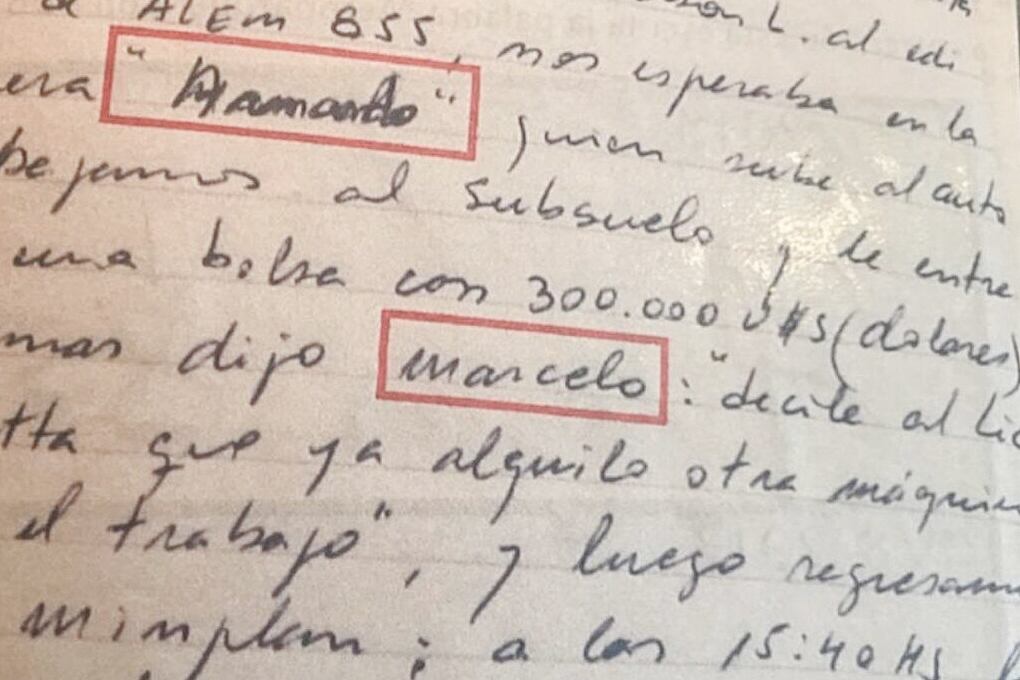 ALEM 855, nos esperaba en la
era "Armando" quien sube al auto
bajamos al subsuelo y le entre
una bolsa con 300.000 U$S (dolares)
mas dijo marcelo: "decile al Lic
tta que ya alquilo otra máquin
el trabajo", y luego regresam
minplan; a las 15:40 HS